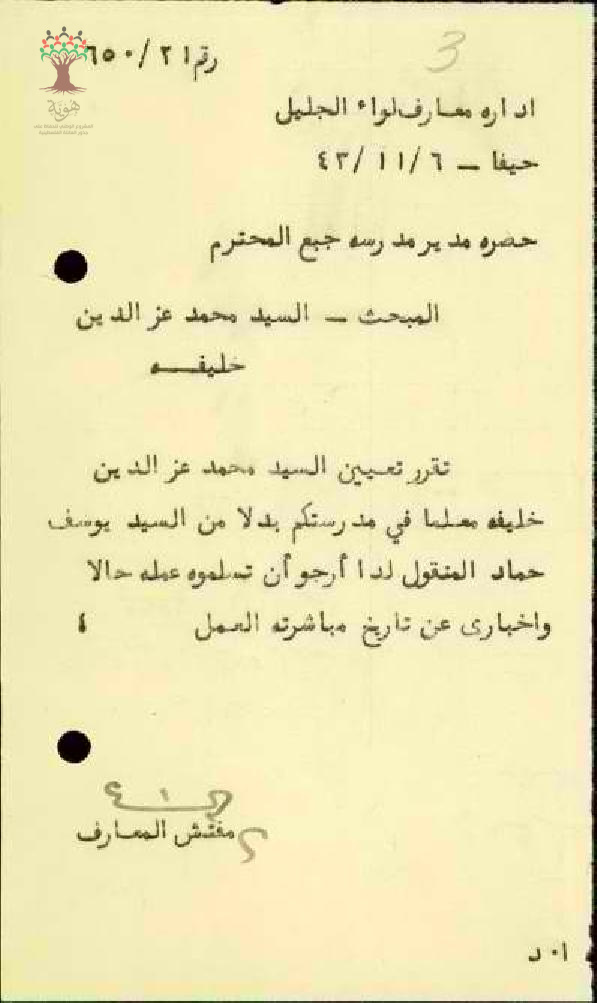 3
رقم ٢١/ ٦٥٠
هوية
اداره معارف لواء الجليل
حيفا – ٦/ ١١/ ٤٣
حضره مدير مدرسه جبع المحترم
المبحث – السيد محمد عز الدين
خليفــه
تقرر تعيين السيد محمد عز الدين
خليفه معلما في مدرستكم بدلا من السيد يوسف
حماد المنقول لذا أرجو أن تسلموه عمله حالا
واخبارى عن تاريخ مباشرته العمل ٤
مفتش المعارف
ا٠ د